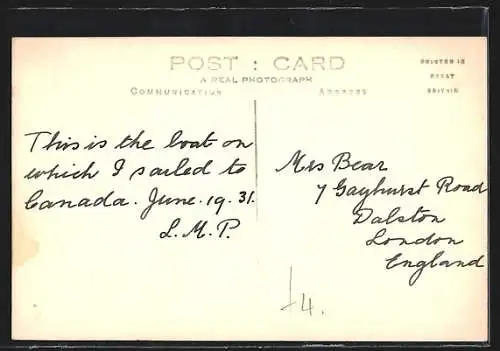 POST : CARD
A REAL PHOTOGRAPH
COMMUNICATION
ADDRESS
PRINTED IN
GREAT
BRITAIN
This is the boat on
which I sailed to
Canada. June. 19. 31.
L.M.P.
Mrs Bear
7 Gayhurst Road
Dalston
London
England
4.